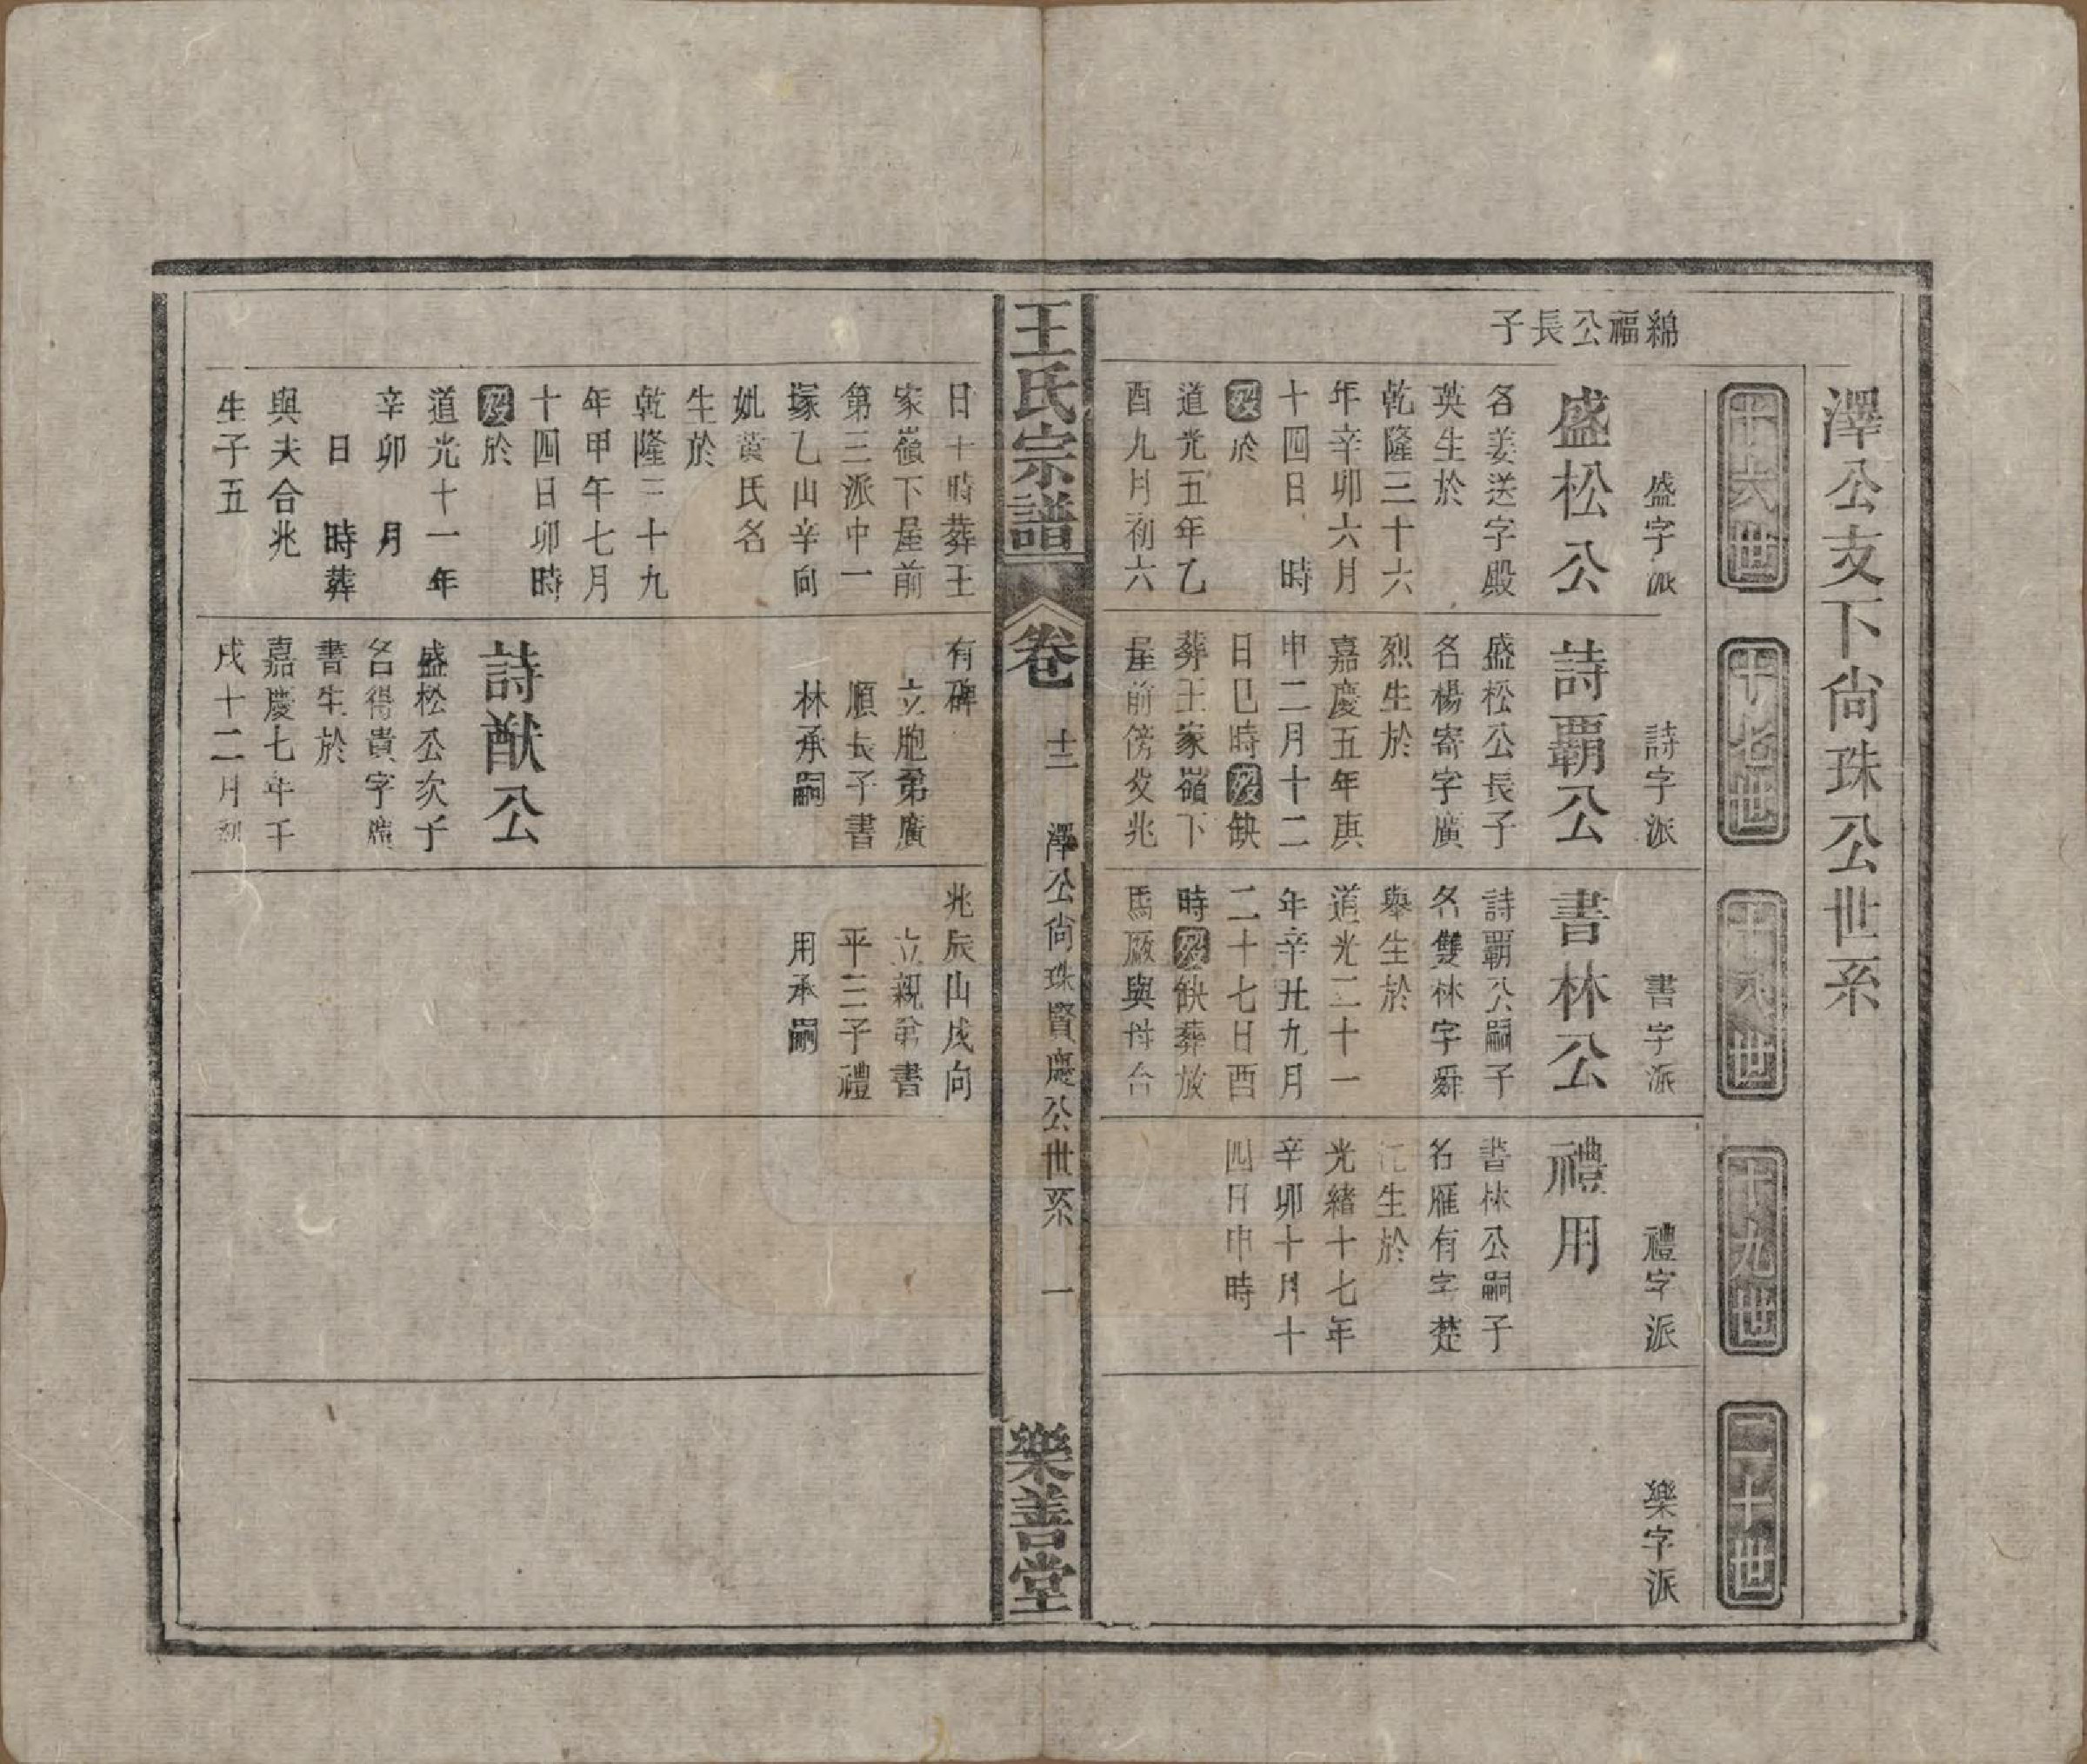 澤公支下尙珠公世系
十六世
十七世
十八世
十九世
二十世
綿福公長子
盛字派
盛松公
名姜送字殿
英生於
乾隆三十六
年辛卯六月
十四日　時
歿於
道光五年乙
酉九月初六
詩字派
詩覇公
盛松公長子
名楊寄字廣
烈生於
嘉慶五年庚
申二月十二
日巳時歿缺
葬王家嶺下
屋前傍父兆
書字派
書林公
詩覇公嗣子
名雙林字舜
舉生於
道光二十一
年辛丑九月
二十七日酉
時歿缺葬放
馬厰與母合
禮字派
禮用
書林公嗣子
名雁有字楚
江生於
光緖十七年
辛卯十月十
四日申時
樂字派
王氏宗譜
卷
十三
澤公尙珠賢慶公世系
一
樂善堂
日十時葬王
家嶺下屋前
第三派中一
塚乙山辛向
妣黃氏名
生於
乾隆三十九
年甲午七月
十四日卯時
歿於
道光十一年
辛卯　月
日　時葬
與夫合兆
生子五
有碑
立胞弟廣
順長子書
林承嗣
詩猷公
盛松公次子
名得貴字廣
書生於
嘉慶七年壬
戌十二月初
兆辰山戌向
立親弟書
平三子禮
用承嗣